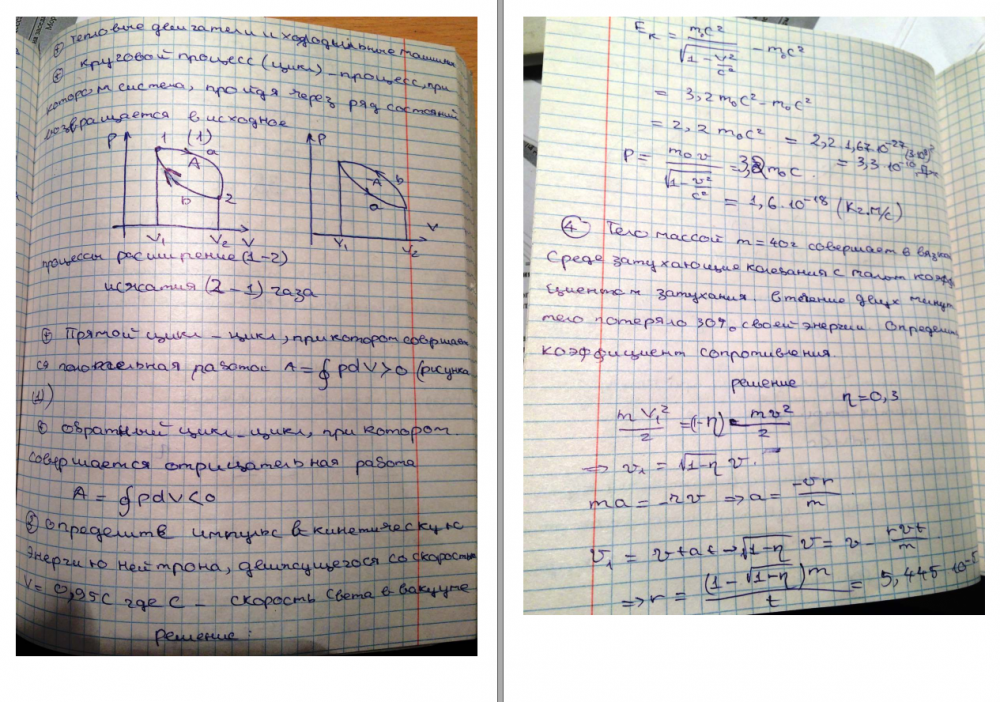 ① тепловые двигатели и холодильные машины
⊕ круговой процесс (цикл) – процесс, при
котором система, пройдя через ряд состояний
возвращается в исходное
P 1 (1) a A b 2 V₁ V₂ V
P b A a V₁ V₂ V
процессы расширение (1–2)
и сжатия (2–1) газа
⊕ Прямой цикл – цикл, при котором совершает
ся положательная работа A = ∮ pdV > 0 (рисунка
(1))
⊕ обратный цикл – цикл, при котором
совершается отрицательная работа
A = ∮ pdV < 0
определите импульс и кинетическую
энергию нейтрона, движущегося со скоростью
V = 0,95c где c – скорость света в вакууме
Решение:
E_к = m₀c² / √(1 – v²/c²) – m₀c²
= 3,2 m₀c² – m₀c²
= 2,2 m₀c² = 2,2 · 1,67·10⁻²⁷ (3·10⁸)²
= 3,3·10⁻¹⁰ Дж
P = m₀v / √(1 – v²/c²) = m₀c.
= 1,6·10⁻¹⁸ (кг.м/с)
④ Тело массой m = 40г совершает в вязкой
среде затухающие колебания с малым коэфф
ициентом затухания. в течение двух минут
тело потеряло 30% своей энергии. Определит
коэффициент сопротивления.
решение
η = 0,3
mV₁²/2 = (1–η) mv²/2
⇒ v₁ = √(1–η) v.
ma = –rv ⇒ a = –vr/m
v₁ = v + at → √(1–η) v = v – rvt/m
⇒ r = (1 – √(1–η))m / t = 5,445·10⁻⁵